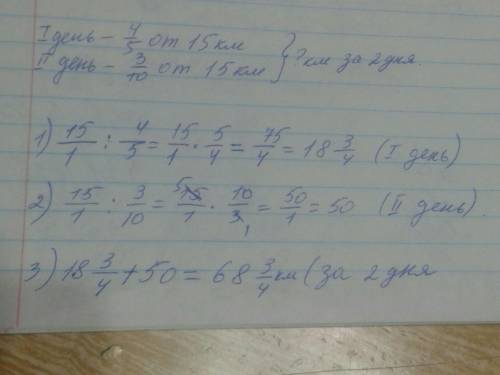 I день – 4/5 от 15 км
II день – 3/10 от 15 км } ? км за 2 дня.
1) 15/1 : 4/5 = 15/1 · 5/4 = 75/4 = 18 3/4 (I день)
2) 15/1 : 3/10 = 15/1 · 10/3 = 50/1 = 50 (II день).
3) 18 3/4 + 50 = 68 3/4 км (за 2 дня